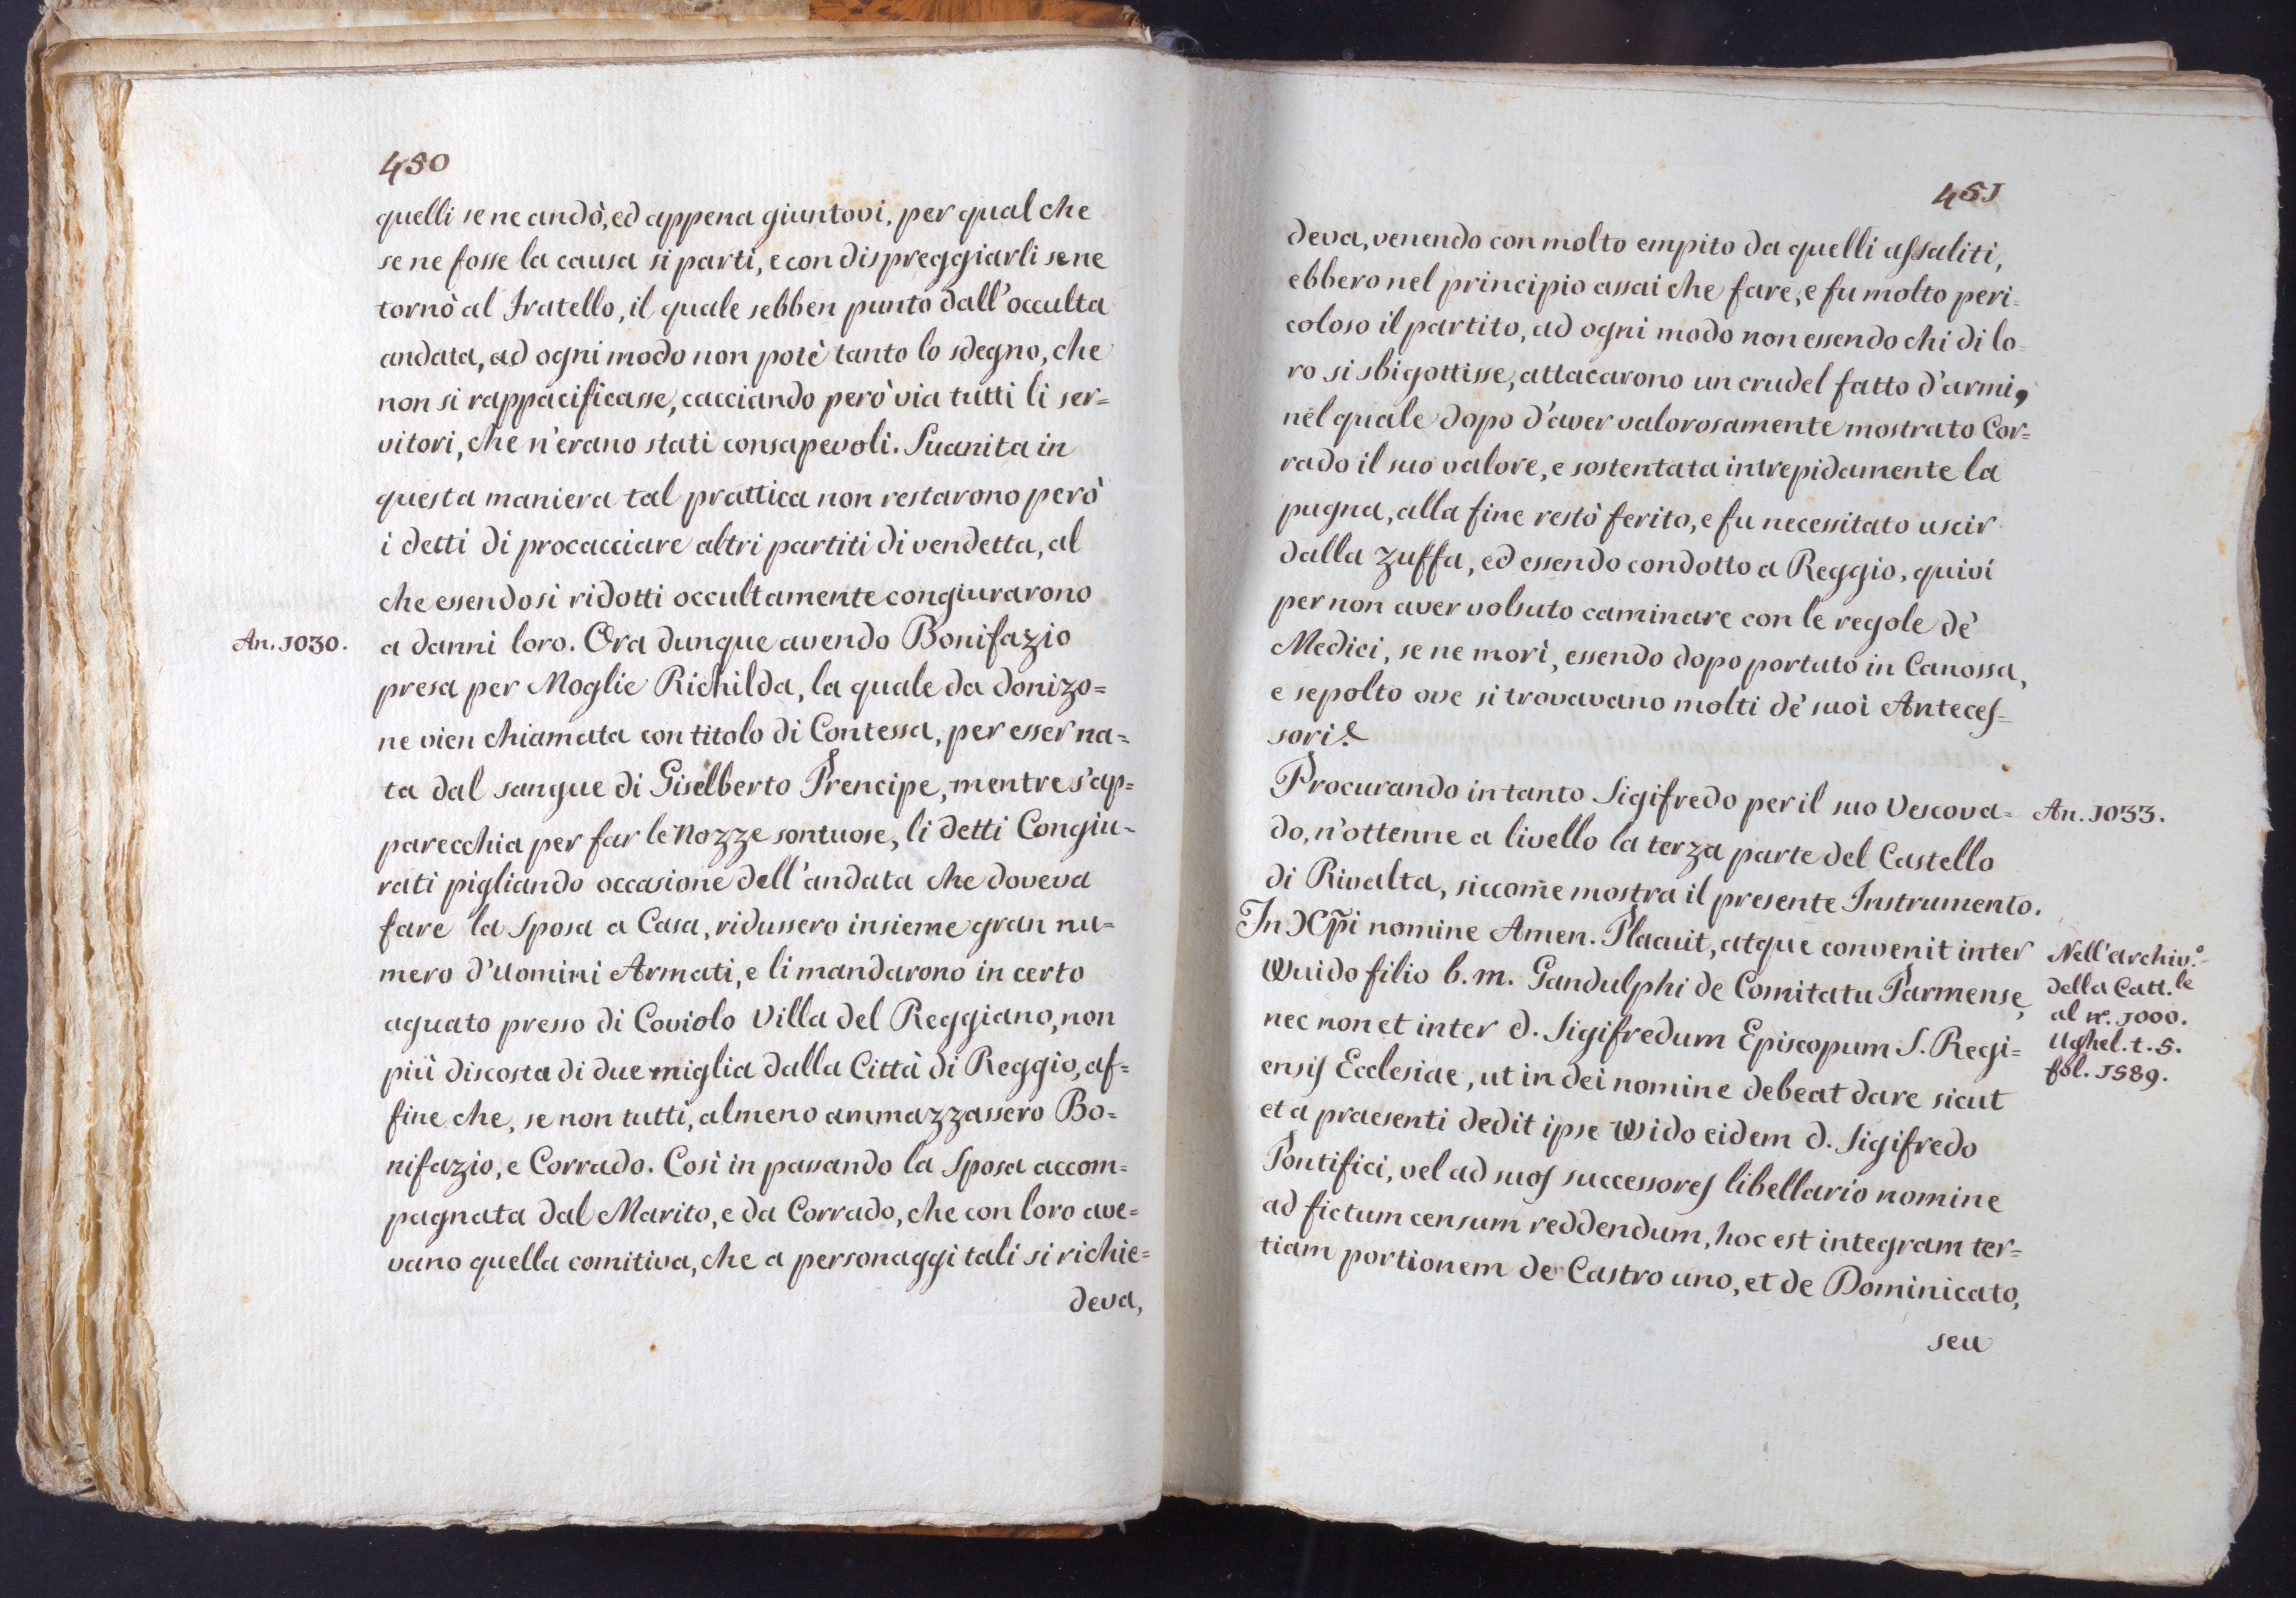 450
quelli se ne andò, ed appena giuntovi, per qual che
se ne fosse la causa si partì, e con dispreggiarli se ne
tornò al Fratello, il quale sebben punto dall'occulta
andata, ad ogni modo non potè tanto lo sdegno, che
non si rappacificasse, cacciando però via tutti li ser=
vitori, che n'erano stati consapevoli. Suanita in
questa maniera tal prattica non restarono però
i detti di procacciare altri partiti di vendetta, al
che essendosi ridotti occultamente congiurarono
An. 1030.
a danni loro. Ora dunque avendo Bonifazio
presa per Moglie Richilda, la quale da Donizo=
ne vien chiamata con titolo di Contessa, per esser na=
ta dal sangue di Giselberto Prencipe, mentre s'ap=
parecchia per far le Nozze sontuose, li detti Congiu=
rati pigliando occasione dell'andata che doveva
fare la Sposa a Casa, ridussero insieme gran nu=
mero d'Uomini Armati, e li mandarono in certo
aguato presso di Coviolo Villa del Reggiano, non
più discosta di due miglia dalla Città di Reggio, af=
fine che, se non tutti, almeno ammazzassero Bo=
nifazio, e Corrado. Così in passando la Sposa accom=
pagnata dal Marito, e da Corrado, che con loro ave=
vano quella comitiva, che a personaggi tali si richie=
deva,
451
deva, venendo con molto empito da quelli assaliti,
ebbero nel principio assai che fare, e fu molto peri=
coloso il partito, ad ogni modo non essendo chi di lo=
ro si sbigottisse, attacarono un crudel fatto d'armi,
nel quale dopo d'aver valorosamente mostrato Cor=
rado il suo valore, e sostentata intrepidamente la
pugna, alla fine restò ferito, e fu necessitato uscir
dalla zuffa, ed essendo condotto a Reggio, quivi
per non aver volsuto caminare con le regole de'
Medici, se ne morì, essendo dopo portato in Canossa,
e sepolto ove si trovavano molti de' suoi Anteces=
sori.
Procurando intanto Sigifredo per il suo Vescova=
An. 1033.
do, n'ottenne a livello la terza parte del Castello
di Rivalta, siccome mostra il presente Instrumento.
In Xp̃i nomine Amen. Placuit, atque convenit inter
Wuido filio b. m. Gandulphi de Comitatu Parmense,
nec non et inter d. Sigifredum Episcopum S. Regi=
ensis Ecclesiae, ut in dei nomine debeat dare sicut
et a praesenti dedit ipse Wido eidem d. Sigifredo
Pontifici, vel ad suos successores libellario nomine
ad fictum censum reddendum, hoc est integram ter=
tiam portionem de Castro uno, et de Dominicato,
seu
Nell'archiv.º
della Catt.le
al nº. 1000.
Ughel. t. 5.
fol. 1589.